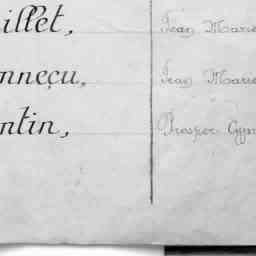 illet, Jean Marie
nneçu, Jean Marie
ntin, Prosper Cyp